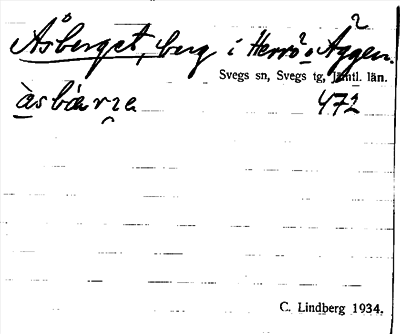 Åsberget, berg i Herrö o Äggen.
Svegs sn, Svegs tg, Jämtl. län.
472
C. Lindberg 1934.